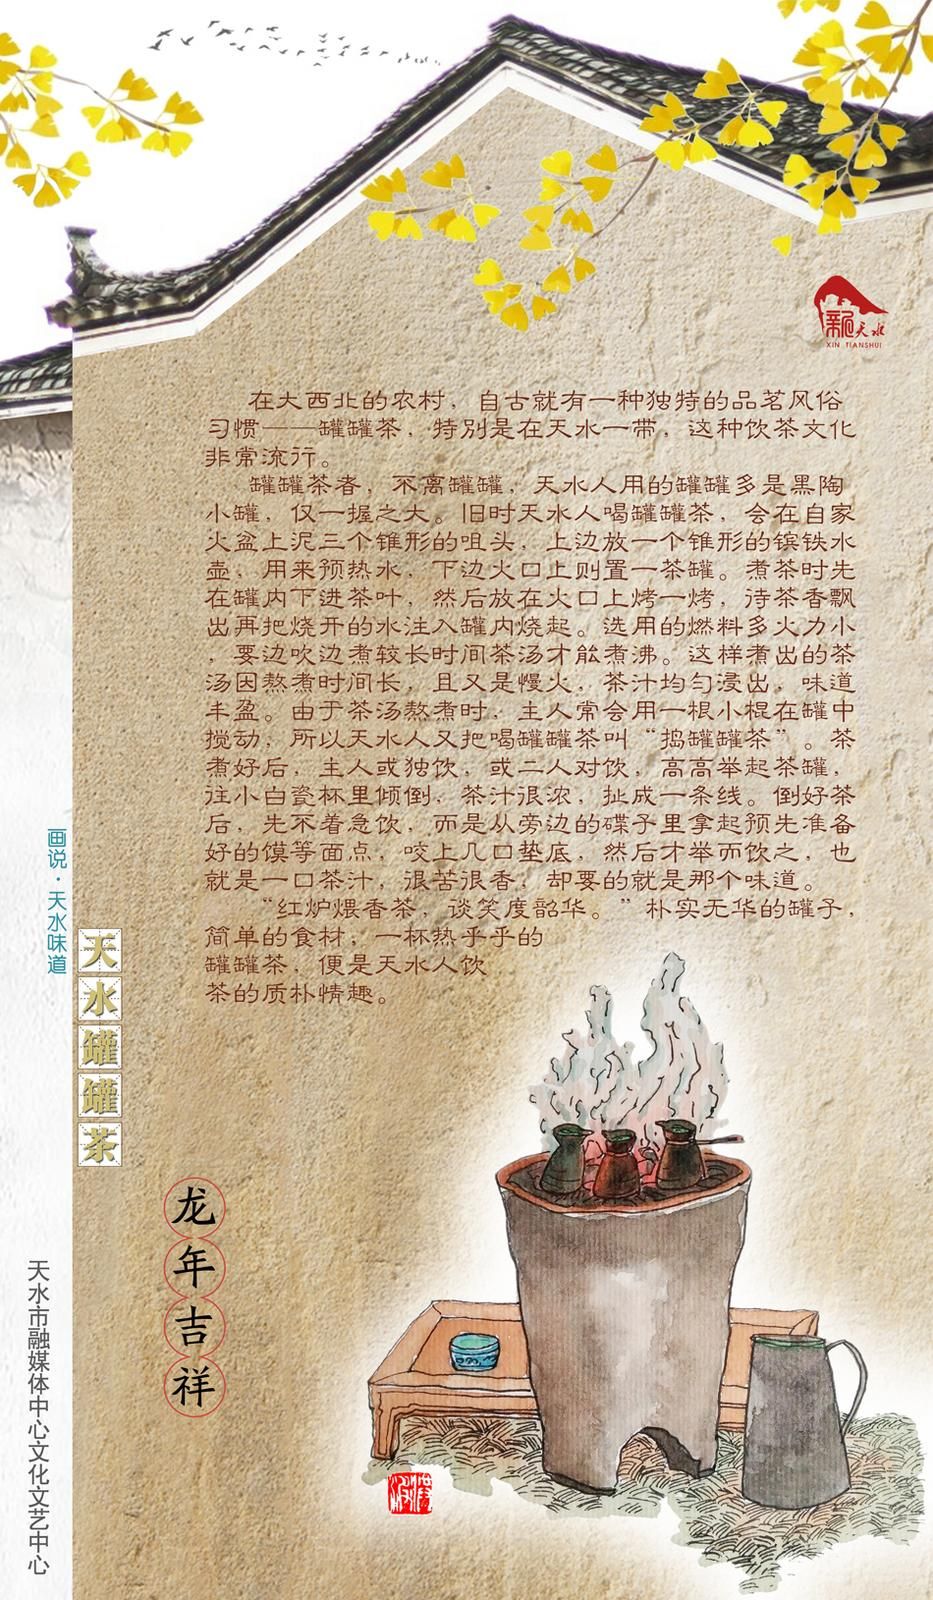 新天水
XIN TIANSHUI
在大西北的农村，自古就有一种独特的品茗风俗
习惯——罐罐茶，特别是在天水一带，这种饮茶文化
非常流行。
罐罐茶者，不离罐罐，天水人用的罐罐多是黑陶
小罐，仅一握之大。旧时天水人喝罐罐茶，会在自家
火盆上泥三个锥形的咀头，上边放一个锥形的镔铁水
壶，用来预热水，下边火口上则置一茶罐。煮茶时先
在罐内下进茶叶，然后放在火口上烤一烤，待茶香飘
出再把烧开的水注入罐内烧起。选用的燃料多火力小
，要边吹边煮较长时间茶汤才能煮沸。这样煮出的茶
汤因熬煮时间长，且又是慢火，茶汁均匀浸出，味道
丰盈。由于茶汤熬煮时，主人常会用一根小棍在罐中
搅动，所以天水人又把喝罐罐茶叫“捣罐罐茶”。茶
煮好后，主人或独饮，或二人对饮，高高举起茶罐，
往小白瓷杯里倾倒，茶汁很浓，扯成一条线。倒好茶
后，先不着急饮，而是从旁边的碟子里拿起预先准备
好的馍等面点，咬上几口垫底，然后才举而饮之，也
就是一口茶汁，很苦很香，却要的就是那个味道。
“红炉煨香茶，谈笑度韶华。”朴实无华的罐子，
简单的食材；一杯热乎乎的
罐罐茶，便是天水人饮
茶的质朴情趣。
画说·天水味道
天水罐罐茶
龙年吉祥
天水市融媒体中心文化文艺中心